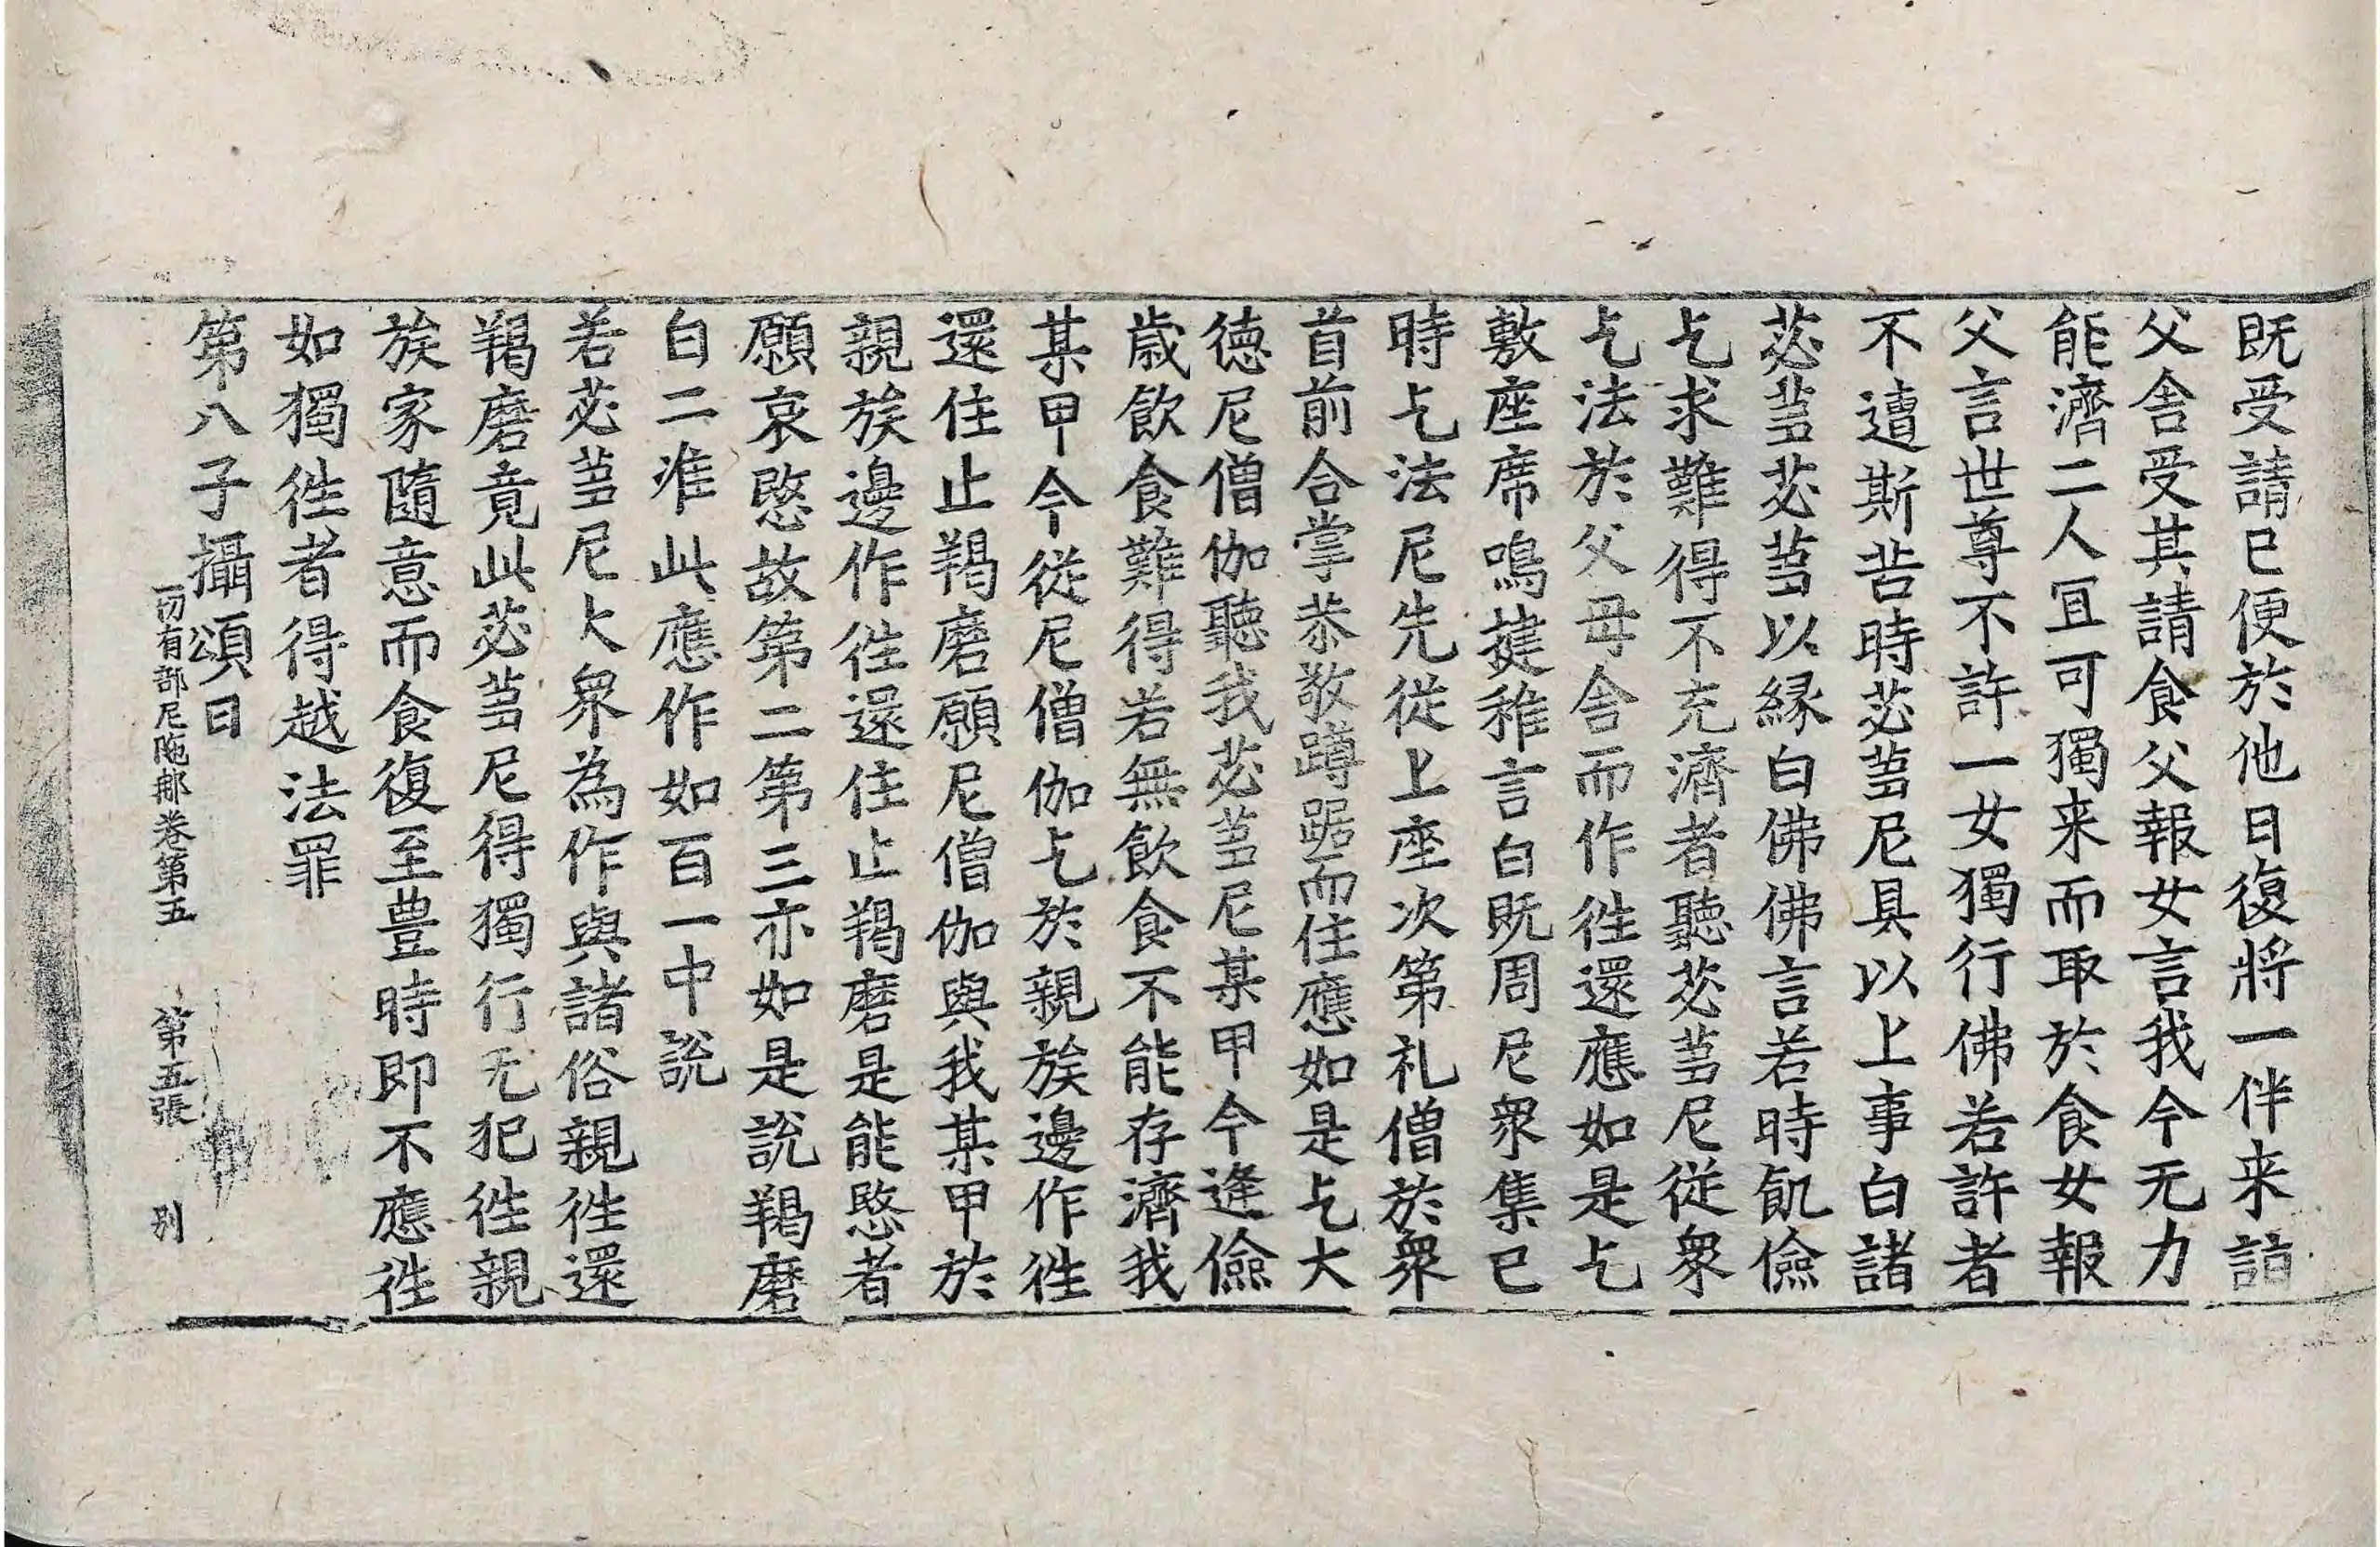 既受請已便於他日復將一伴来詣
父舎受其請食父報女言我今无力
能濟二人冝可獨来而取於食女報
父言世尊不許一女獨行佛若許者
不遭斯苦時苾蒭尼具以上事白諸
苾蒭苾蒭以緣白佛佛言若時飢儉
乞求難得不充濟者聽苾蒭尼從衆
乞法於父母舎而作往還應如是乞
敷座席鳴揵稚言白既周尼衆集已
時乞法尼先從上座次第礼僧於衆
首前合掌恭敬蹲踞而住應如是乞大
德尼僧伽聽我苾蒭尼某甲今逢儉
歳飲食難得若無飲食不能存濟我
某甲今從尼僧伽乞於親族邊作往
還住止羯磨願尼僧伽與我某甲於
親族邊作往還住止羯磨是能愍者
願哀愍故第二第三亦如是說羯磨
白二准此應作如百一中說
若苾蒭尼大衆為作與諸俗親往還
羯磨竟此苾蒭尼得獨行无犯往親
族家隨意而食復至豊時即不應往
如獨往者得越法罪
第八子攝頌曰
一切有部尼陁那卷第五 第五張 別